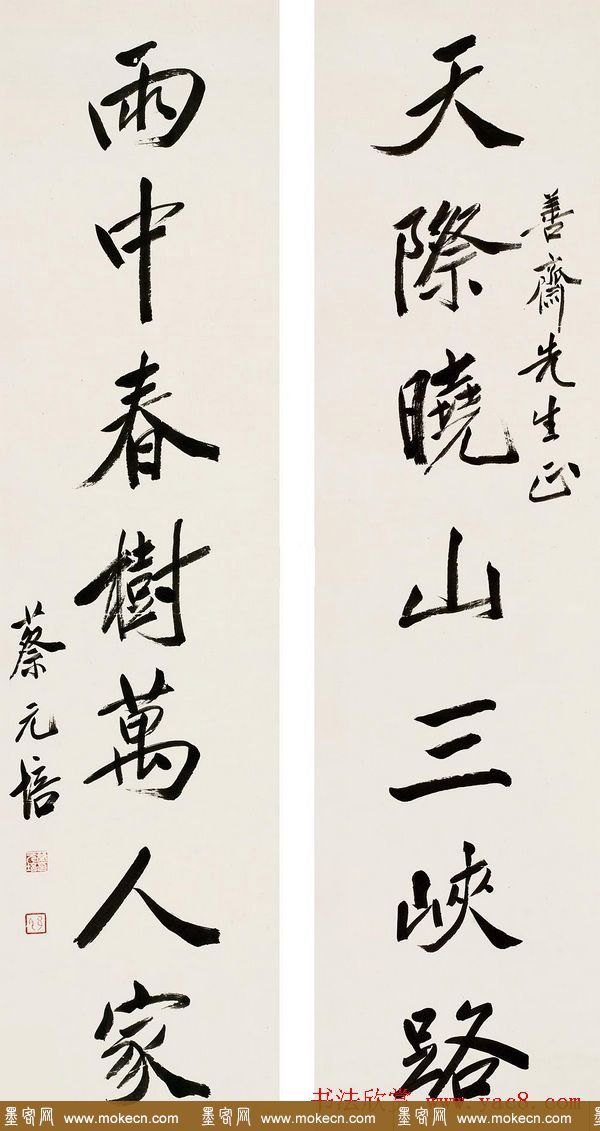 善齋先生正
天際曉山三峽路
雨中春樹萬人家
蔡元培
书法欣赏 www.yac8.com
墨客网 www.mokecn.com 墨客网 www.mokecn.com 墨客网 www.mokecn.com